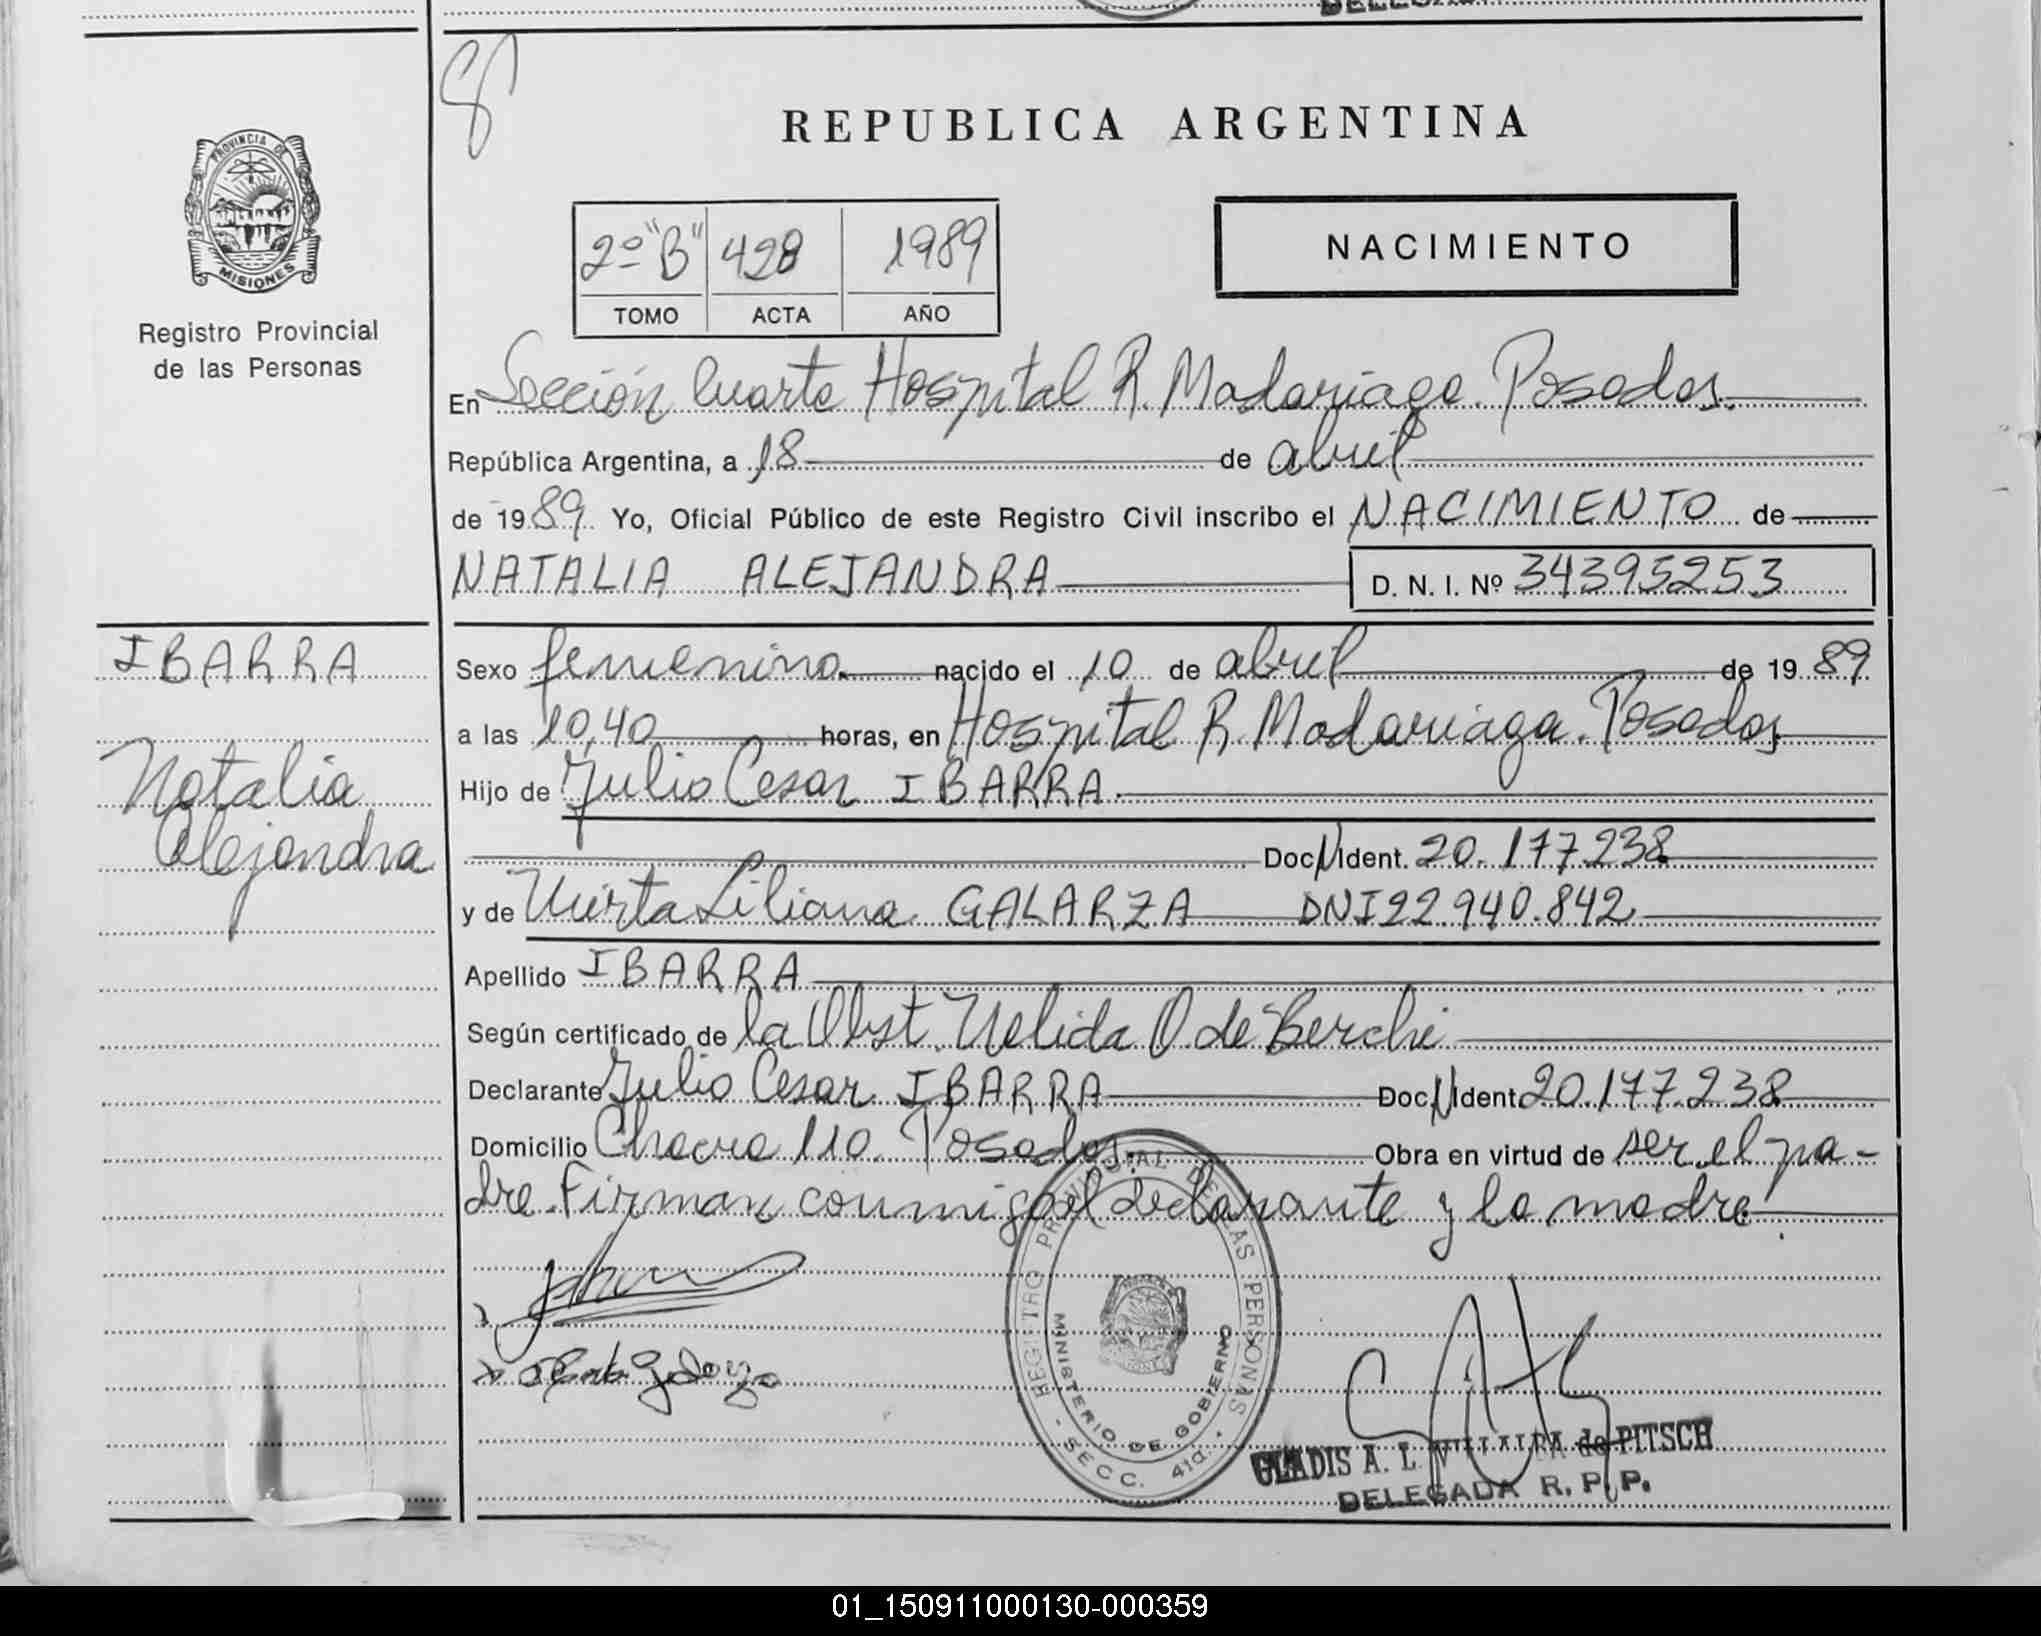 REPUBLICA ARGENTINA
PROVINCIA DE
MISIONES
Registro Provincial
de las Personas
2º "B" 428 1989
TOMO ACTA AÑO
NACIMIENTO
En Sección Cuarta Hospital R. Madariaga. Posadas.
República Argentina, a 18 de abril
de 1989 Yo, Oficial Público de este Registro Civil inscribo el NACIMIENTO de
NATALIA ALEJANDRA D. N. I. Nº 34395253
IBARRA
Natalia
Alejandra
Sexo femenino. nacido el 10 de abril de 1989
a las 10,40 horas, en Hospital R. Madariaga. Posadas
Hijo de Julio Cesar IBARRA
Doc N Ident. 20.177.238
y de Mirta Liliana GALARZA DNI 22 940.842
Apellido IBARRA
Según certificado de la Obst. Nelida O. de Berchi
Declarante Julio Cesar IBARRA Doc N Ident 20.177.238
Domicilio Chacra 110. Posadas. Obra en virtud de ser el pa-
dre. Firman conmigo el declarante y la madre.
REGISTRO PROVINCIAL DE LAS PERSONAS
MINISTERIO DE GOBIERNO
SECC. 4ta.
GLADIS A. L. VILLALBA de PITSCH
DELEGADA R. P. P.
01_150911000130-000359